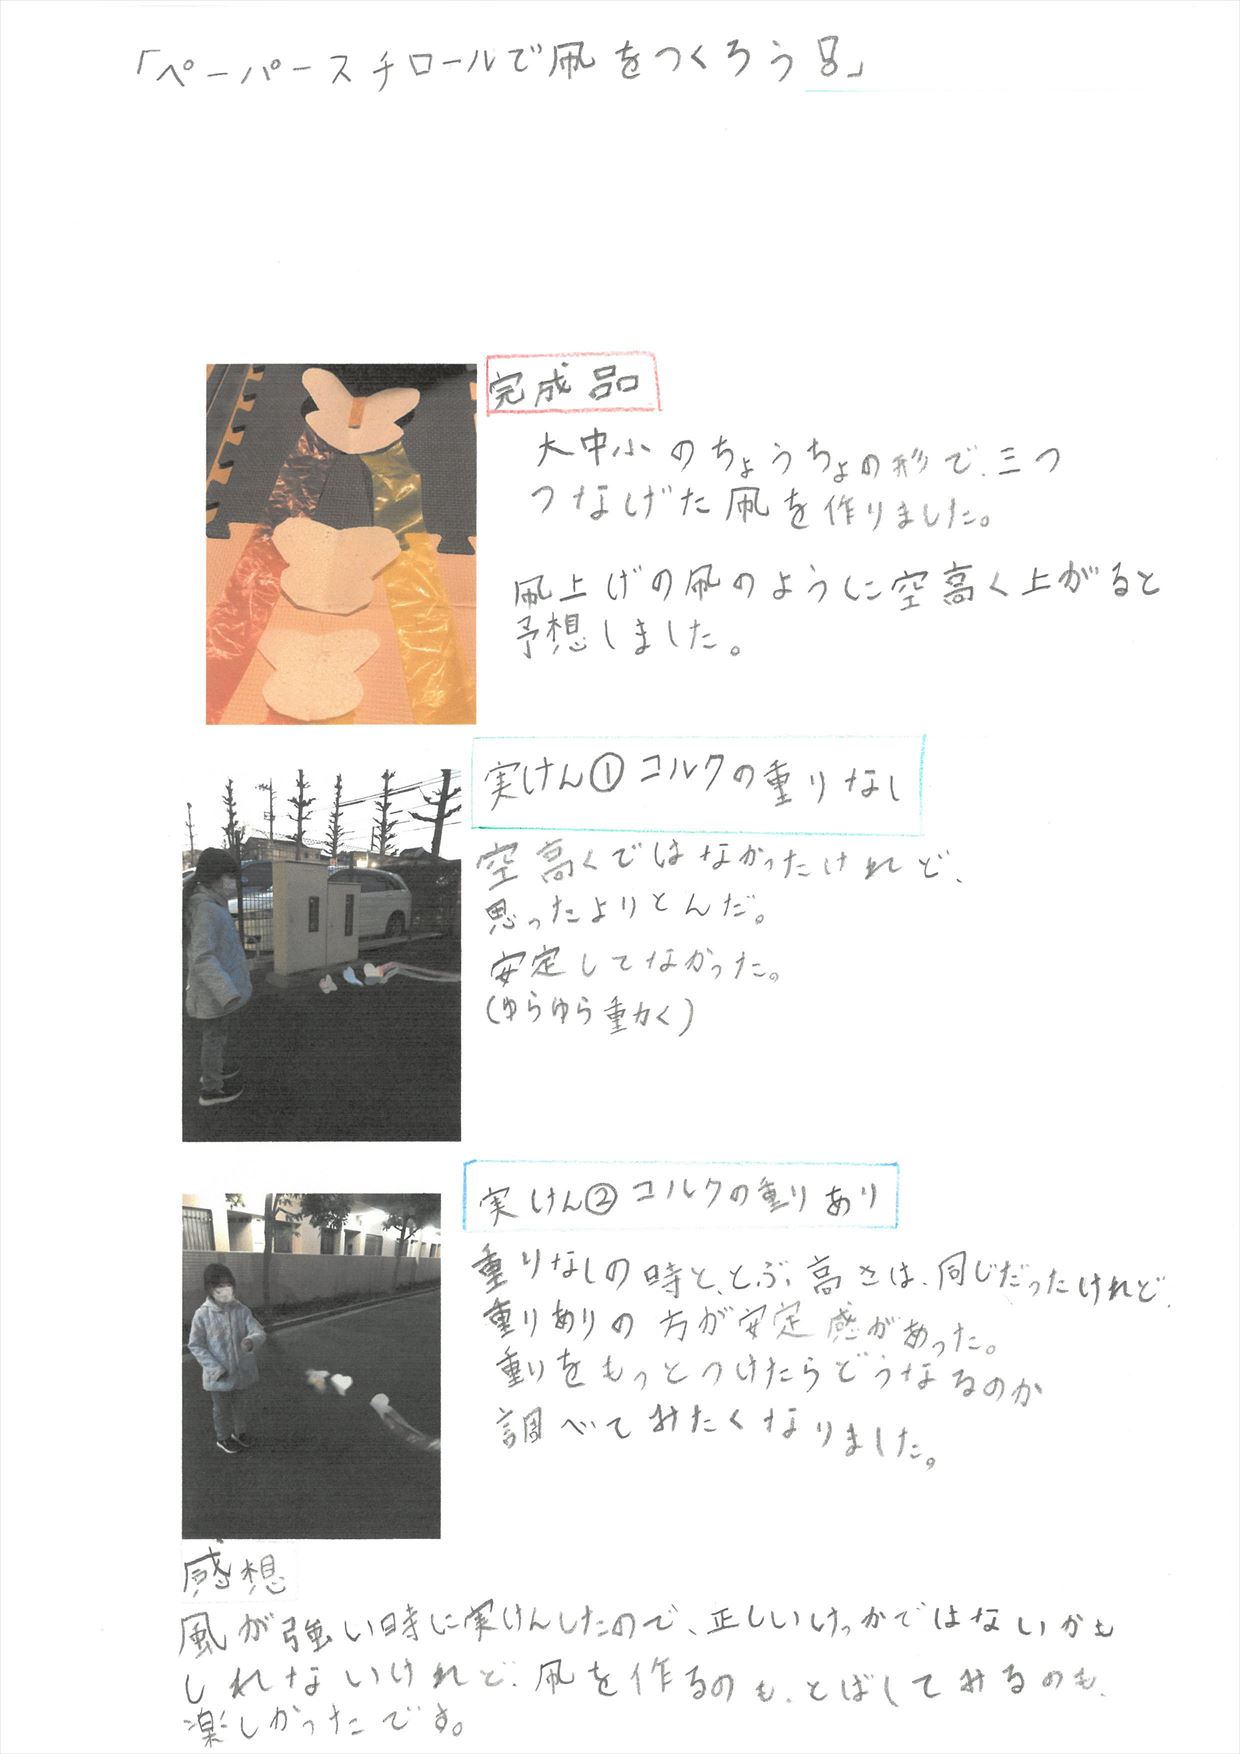 「ペーパースチロールで凧をつくろう号」
完成品
大中小のちょうちょの形で、三つ
つなげた凧を作りました。
凧上げの凧のように空高く上がると
予想しました。
実けん①コルクの重りなし
空高くではなかったけれど、
思ったよりとんだ。
安定してなかった。
(ゆらゆら動く)
実けん②コルクの重りあり
重りなしの時と、とぶ高さは、同じだったけれど、
重りありの方が安定感があった。
重りをもっとつけたらどうなるのか
調べてみたくなりました。
感想
風が強い時に実けんしたので、正しいけっかではないかも
しれないけれど、凧を作るのも、とばしてみるのも、
楽しかったです。